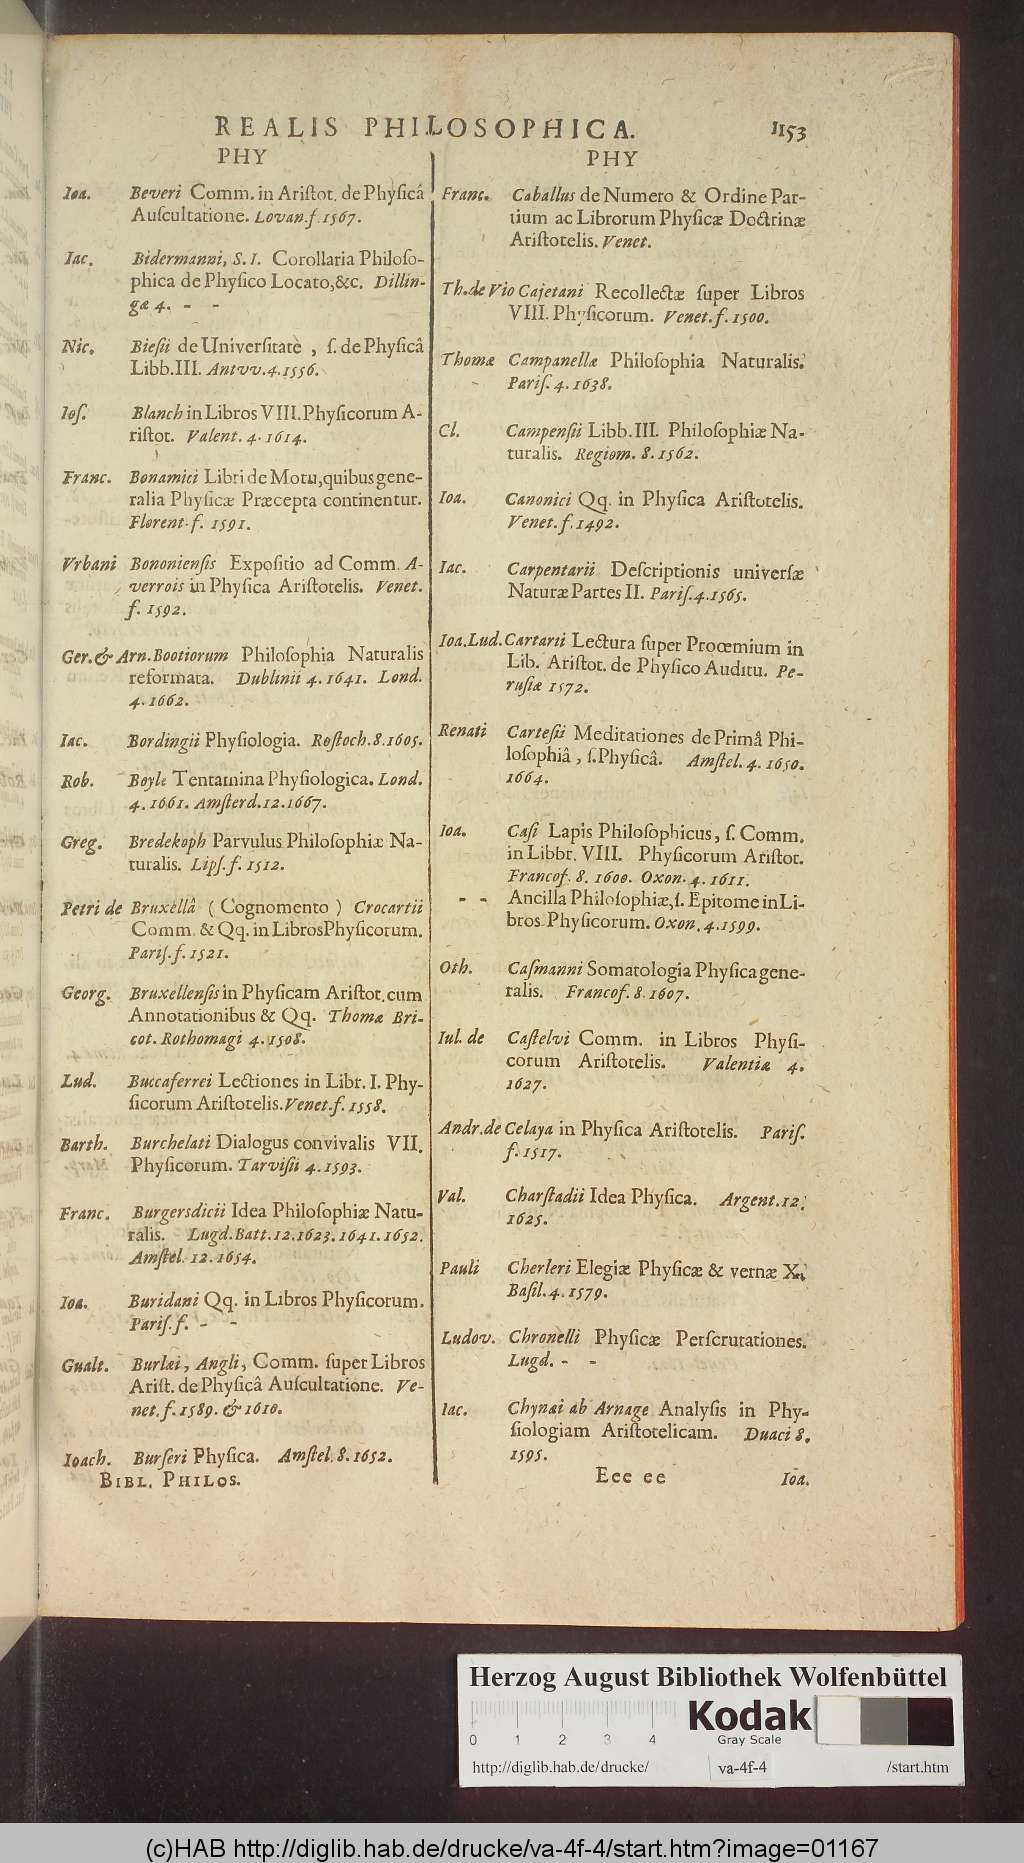 REALIS PHILOSOPHICA. 1153
PHY
Ioa. Beveri Comm. in Ariſtot. de Phyſicâ
Auſcultatione. Lovan. f. 1567.
Iac. Bidermanni, S. I. Corollaria Philoſo-
phica de Phyſico Locato, &c. Dillin-
gæ 4. - -
Nic. Bieſii de Univerſitate, ſ. de Phyſicâ
Libb. III. Antvv. 4. 1556.
Ioſ. Blanch in Libros VIII. Phyſicorum A-
riſtot. Valent. 4. 1614.
Franc. Bonamici Libri de Motu, quibus gene-
ralia Phyſicæ Præcepta continentur.
Florent. f. 1591.
Vrbani Bononienſis Expoſitio ad Comm. A-
verrois in Phyſica Ariſtotelis. Venet.
f. 1592.
Ger. & Arn. Bootiorum Philoſophia Naturalis
reformata. Dublinii 4. 1641. Lond.
4. 1662.
Iac. Bordingii Phyſiologia. Roſtoch. 8. 1605.
Rob. Boyle Tentamina Phyſiologica. Lond.
4. 1661. Amſterd. 12. 1667.
Greg. Bredekoph Parvulus Philoſophiæ Na-
turalis. Lipſ. f. 1512.
Petri de Bruxellâ ( Cognomento ) Crocartii
Comm. & Qq. in Libros Phyſicorum.
Pariſ. f. 1521.
Georg. Bruxellenſis in Phyſicam Ariſtot. cum
Annotationibus & Qq. Thomæ Bri-
cot. Rothomagi 4. 1508.
Lud. Buccaferrei Lectiones in Libr. I. Phy-
ſicorum Ariſtotelis. Venet. f. 1558.
Barth. Burchelati Dialogus convivalis VII.
Phyſicorum. Tarviſii 4. 1593.
Franc. Burgersdicii Idea Philoſophiæ Natu-
ralis. Lugd. Batt. 12. 1623. 1641. 1652.
Amſtel. 12. 1654.
Ioa. Buridani Qq. in Libros Phyſicorum.
Pariſ. f. - -
Gualt. Burlæi, Angli, Comm. ſuper Libros
Ariſt. de Phyſicâ Auſcultatione. Ve-
net. f. 1589. & 1610.
Ioach. Burſeri Phyſica. Amſtel. 8. 1652.
BIBL. PHILOS.
PHY
Franc. Caballus de Numero & Ordine Par-
tium ac Librorum Phyſicæ Doctrinæ
Ariſtotelis. Venet.
Th. de Vio Cajetani Recollectæ ſuper Libros
VIII. Phyſicorum. Venet. f. 1500.
Thomæ Campanellæ Philoſophia Naturalis.
Pariſ. 4. 1638.
Cl. Campenſii Libb. III. Philoſophiæ Na-
turalis. Regiom. 8. 1562.
Ioa. Canonici Qq. in Phyſica Ariſtotelis.
Venet. f. 1492.
Iac. Carpentarii Deſcriptionis univerſæ
Naturæ Partes II. Pariſ. 4. 1565.
Ioa. Lud. Cartarii Lectura ſuper Prooemium in
Lib. Ariſtot. de Phyſico Auditu. Pe-
ruſiæ 1572.
Renati Carteſii Meditationes de Primâ Phi-
loſophiâ, ſ. Phyſicâ. Amſtel. 4. 1650.
1664.
Ioa. Caſi Lapis Philoſophicus, ſ. Comm.
in Libbr. VIII. Phyſicorum Ariſtot.
Francof. 8. 1600. Oxon. 4. 1611.
- - Ancilla Philoſophiæ, ſ. Epitome in Li-
bros Phyſicorum. Oxon. 4. 1599.
Oth. Caſmanni Somatologia Phyſica gene-
ralis. Francof. 8. 1607.
Iul. de Caſtelvi Comm. in Libros Phyſi-
corum Ariſtotelis. Valentiæ 4.
1627.
Andr. de Celaya in Phyſica Ariſtotelis. Pariſ.
f. 1517.
Val. Charſtadii Idea Phyſica. Argent. 12.
1625.
Pauli Cherleri Elegiæ Phyſicæ & vernæ X.
Baſil. 4. 1579.
Ludov. Chronelli Phyſicæ Perſcrutationes.
Lugd. - -
Iac. Chynæi ab Arnage Analyſis in Phy-
ſiologiam Ariſtotelicam. Duaci 8.
1595.
Eee ee Ioa.
Herzog August Bibliothek Wolfenbüttel
0 1 2 3 4
Kodak
Gray Scale
http://diglib.hab.de/drucke/ va-4f-4 /start.htm
(c)HAB http://diglib.hab.de/drucke/va-4f-4/start.htm?image=01167